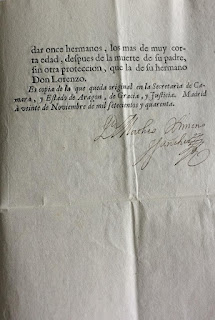 dar once hermanos, los mas de muy cor
ta edad, despues de la muerte de su padre,
sin otra proteccion, que la de su hermano
Don Lorenzo.
Es copia de la que queda original en la Secretaria de Ca-
mara, y Estado de Aragon, de Gracia, y Justicia. Madrid
à veinte de Noviembre de mil setecientos y quarenta.
Sanchez